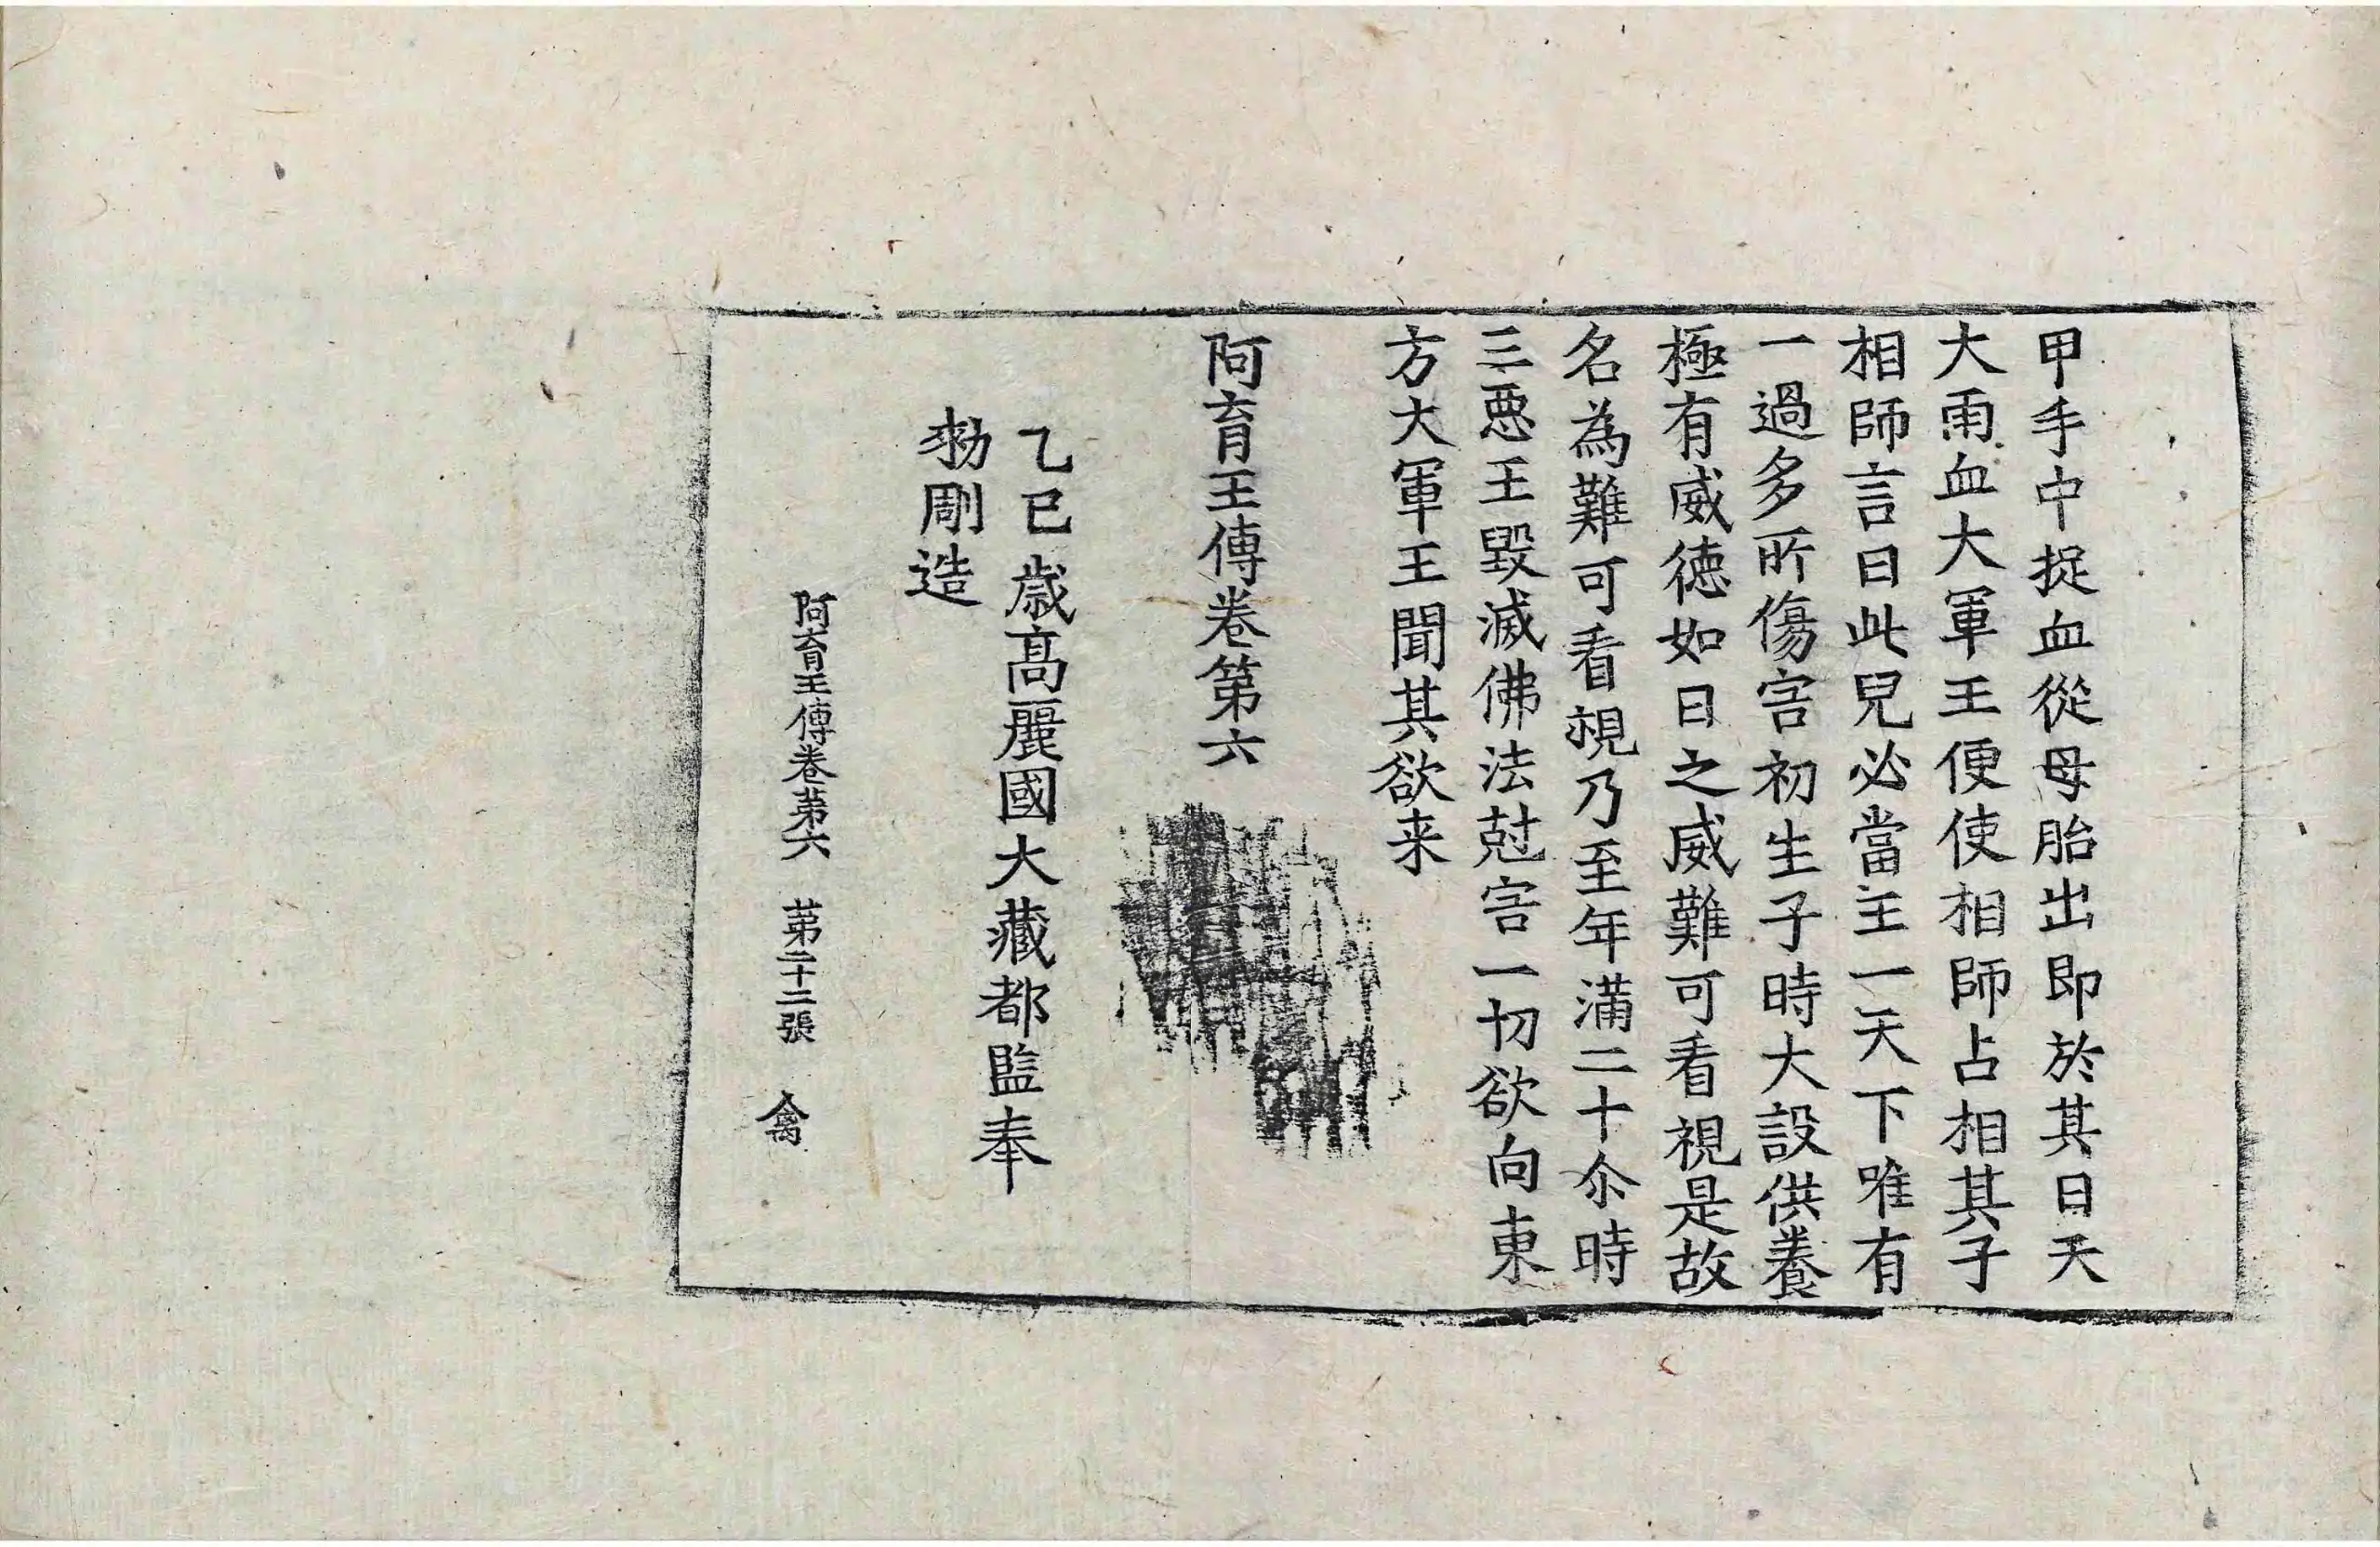 甲手中捉血從母胎出即於其日天
大雨血大軍王便使相師占相其子
相師言曰此兒必當主一天下唯有
一過多所傷害初生子時大設供養
極有威徳如日之威難可看視是故
名為難可看視乃至年滿二十尒時
三惡王毀滅佛法尅害一切欲向東
方大軍王聞其欲来
阿育王傳卷第六
乙巳歳高麗國大藏都監奉
勑彫造
阿育王傳卷苐六　苐二十二張　禽